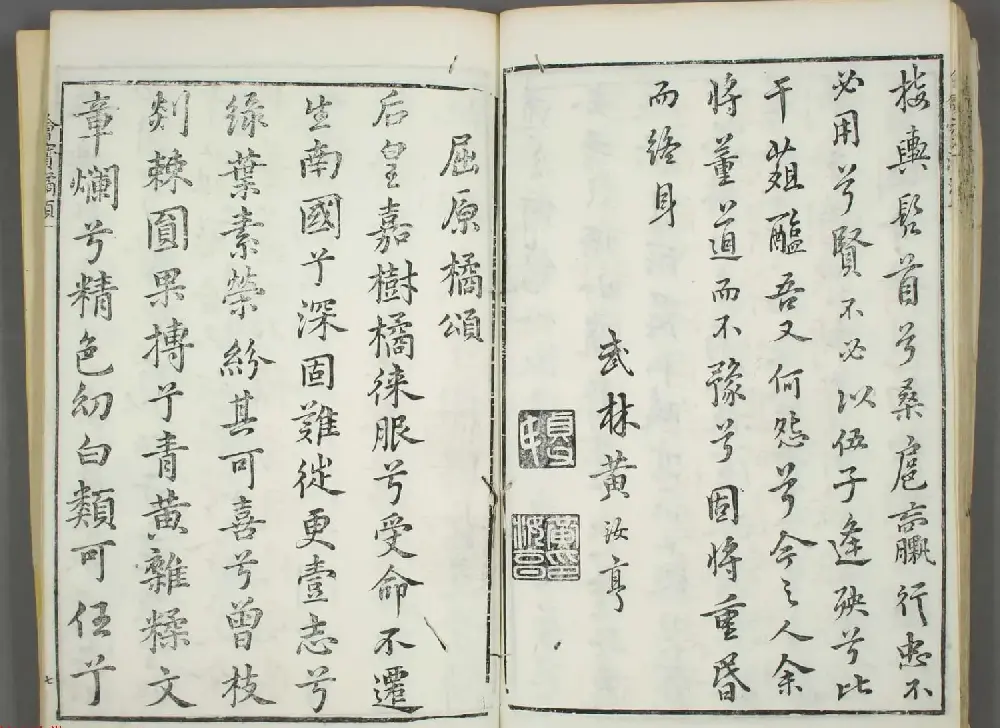 接輿髠首兮桑扈臝行忠不
必用兮賢不必以伍子逢殃兮比
干葅醢吾又何怨兮今之人余
將董道而不豫兮固將重昏
而終身
武林黄汝亨
屈原橘頌
后皇嘉樹橘徠服兮受命不遷
生南國兮深固難徙更壹志兮
緑葉素榮紛其可喜兮曾枝
剡棘圓果摶兮青黄雜糅文
章爛兮精色白類可任兮
七